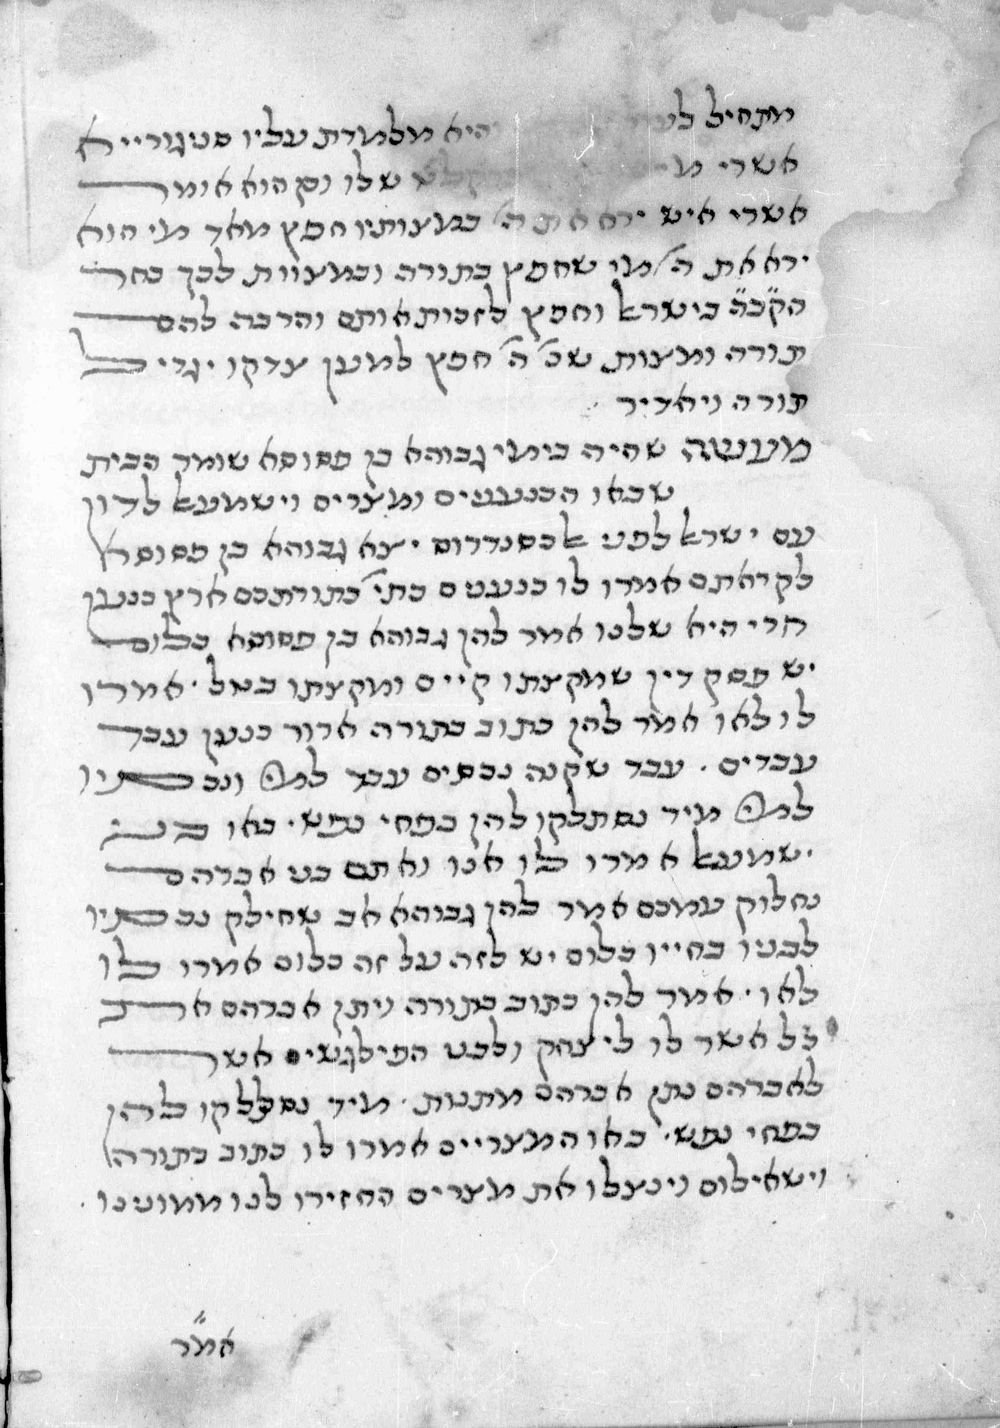 מתחיל והיא מלמדת עליו סניגורייא
אשרי שלו וכן הוא אומר
אשרי איש ירא את ה' במצותיו חפץ מאד מי הוא
ירא את ה' מי שחפץ בתורה ובמצוות לכך בחר
הק"בה בישראל וחפץ לזכות אותם והרבה להם
תורה ומצות שנ' ה' חפץ למען צדקו יגדיל
תורה ויאדיר
מעשה שהיה בימי גבוהא בן פסוסא שומר הבית
שבאו הכנענים ומצרים וישמעאל לדון
עם ישראל לפני אלכסנדרוס יצא גבוהא בן פסוסא
לקראתם אמרו לו כנענים כתי' בתורתכם ארץ כנען
הרי היא שלנו אמר להן גבוהא בן פסוסא כלום
יש פסק דין שמקצתו קיים ומקצתו בטל. אמרו
לו לאו אמר להן כתוב בתורה ארור כנען עבד
עבדים. עבד שקנה נכסים עבד למי ונכסיו
למי מיד נסתלקו להן בפחי נפש. באו בני
ישמעאל אמרו לו אנו ואתם בני אברהם
נחלוק עמכם אמר להן גבוהא אב שחילק נכסיו
לבניו בחייו כלום יש לזה על זה כלום אמרו לו
לאו. אמר להן כתוב בתורה ויתן אברהם את
כל אשר לו ליצחק ולבני הפילגשים אשר
לאברהם נתן אברהם מתנות. מיד נסתלקו להן
בפחי נפש. באו המצריים אמרו לו כתוב בתורה
וישאילום וינצלו את מצרים החזירו לנו ממונינו.
אמ"ר